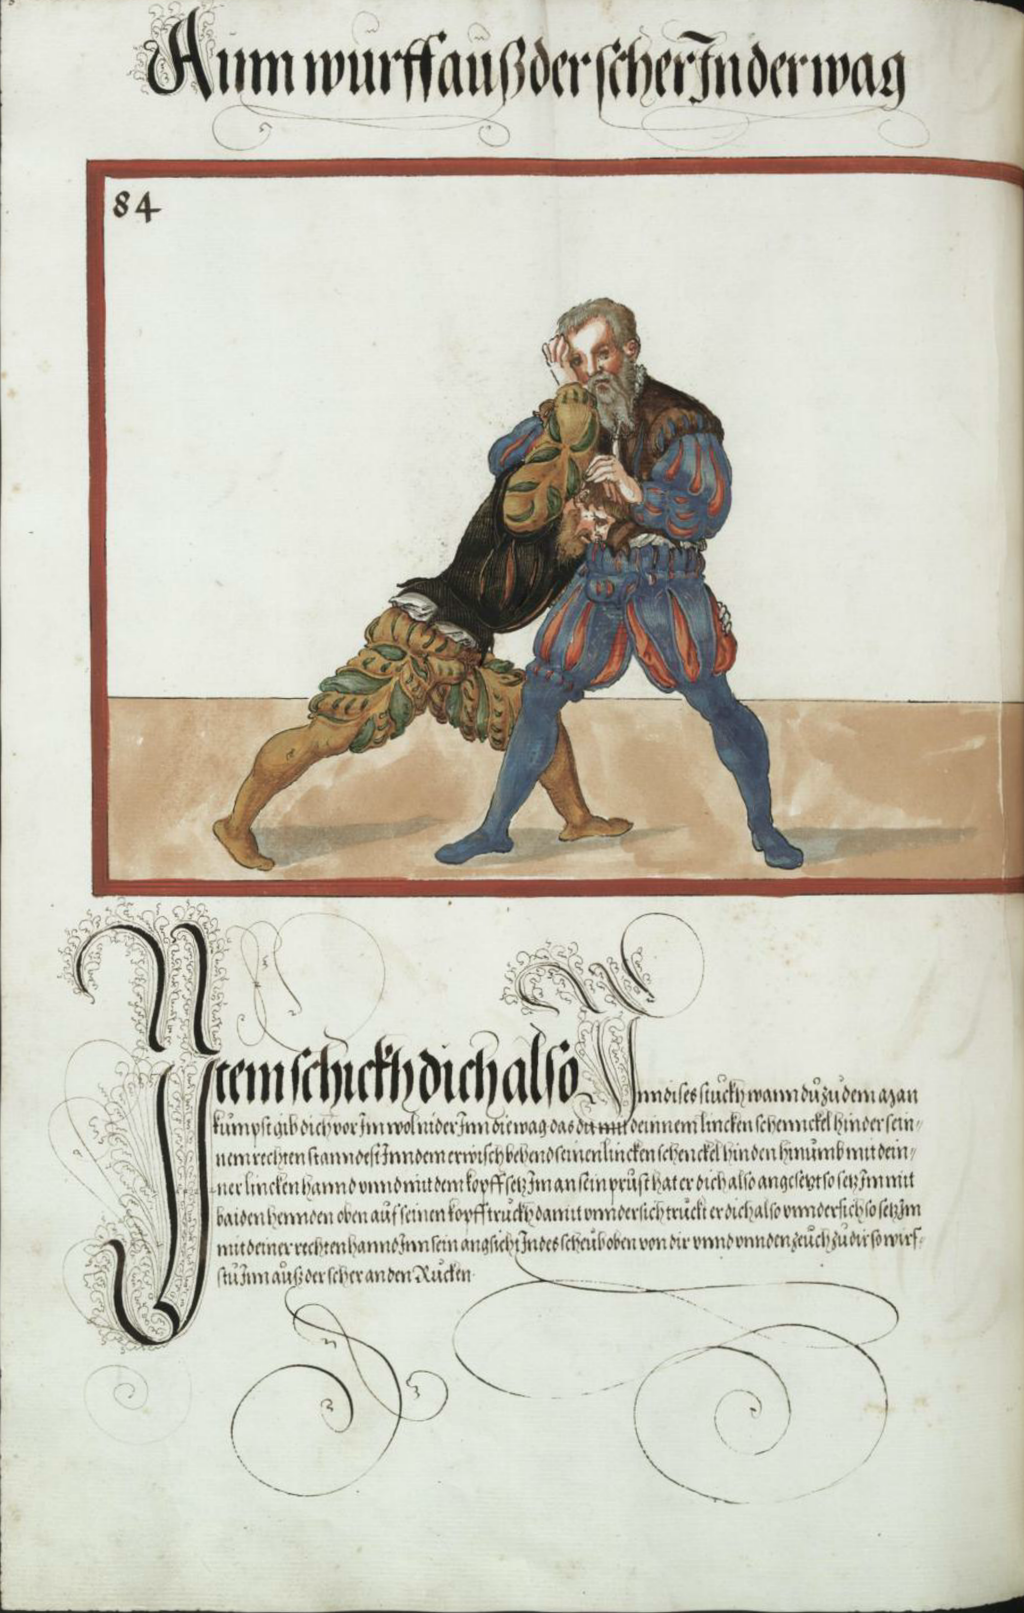 Ainn wurff auß der scher Jn der wag
84
Jtem schickh dich also Jnn dises stuckh wann du zu dem Man
kumpst gib dich vor Jm wol nider Jnn die wag das du mit deinnem lincken schennckel hinder sein-
nem rechten stanndest Jnn dem erwisch behend seinen lincken schenckel hinden hinumb mit dein-
ner lincken hannd vnnd mit dem kopff setz Jm an sein prust hat er dich also angesetzt so setz Jm mit
baiden hennden oben auf seinen kopff truckh damit vnndersich truckt er dich also vnndersich so setz Jm
mit deiner rechten hannd Jnn sein angsicht Jndes scheub oben von dir vnnd vnnden zeuch zu dir so wirf-
stu Jnn auß der scher an den Rucken